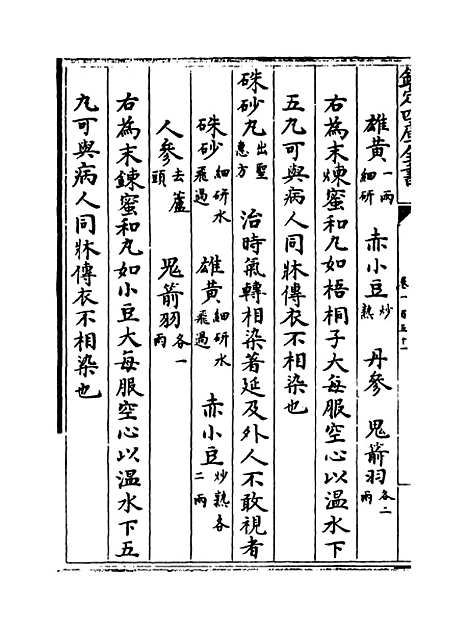 欽定四庫全書
卷一百五十一
雄黃一兩細研 赤小豆炒熟 丹參 鬼箭羽各二兩
右為末煉蜜和丸如梧桐子大每服空心以温水下
五丸可與病人同牀傳衣不相染也
硃砂丸出聖惠方 治時氣轉相染著延及外人不敢視者
硃砂細研水飛過 雄黃細研水飛過 赤小豆炒熟各二兩
人參去蘆頭 鬼箭羽各一兩
右為末鍊蜜和丸如小豆大每服空心以温水下五
丸可與病人同牀傳衣不相染也